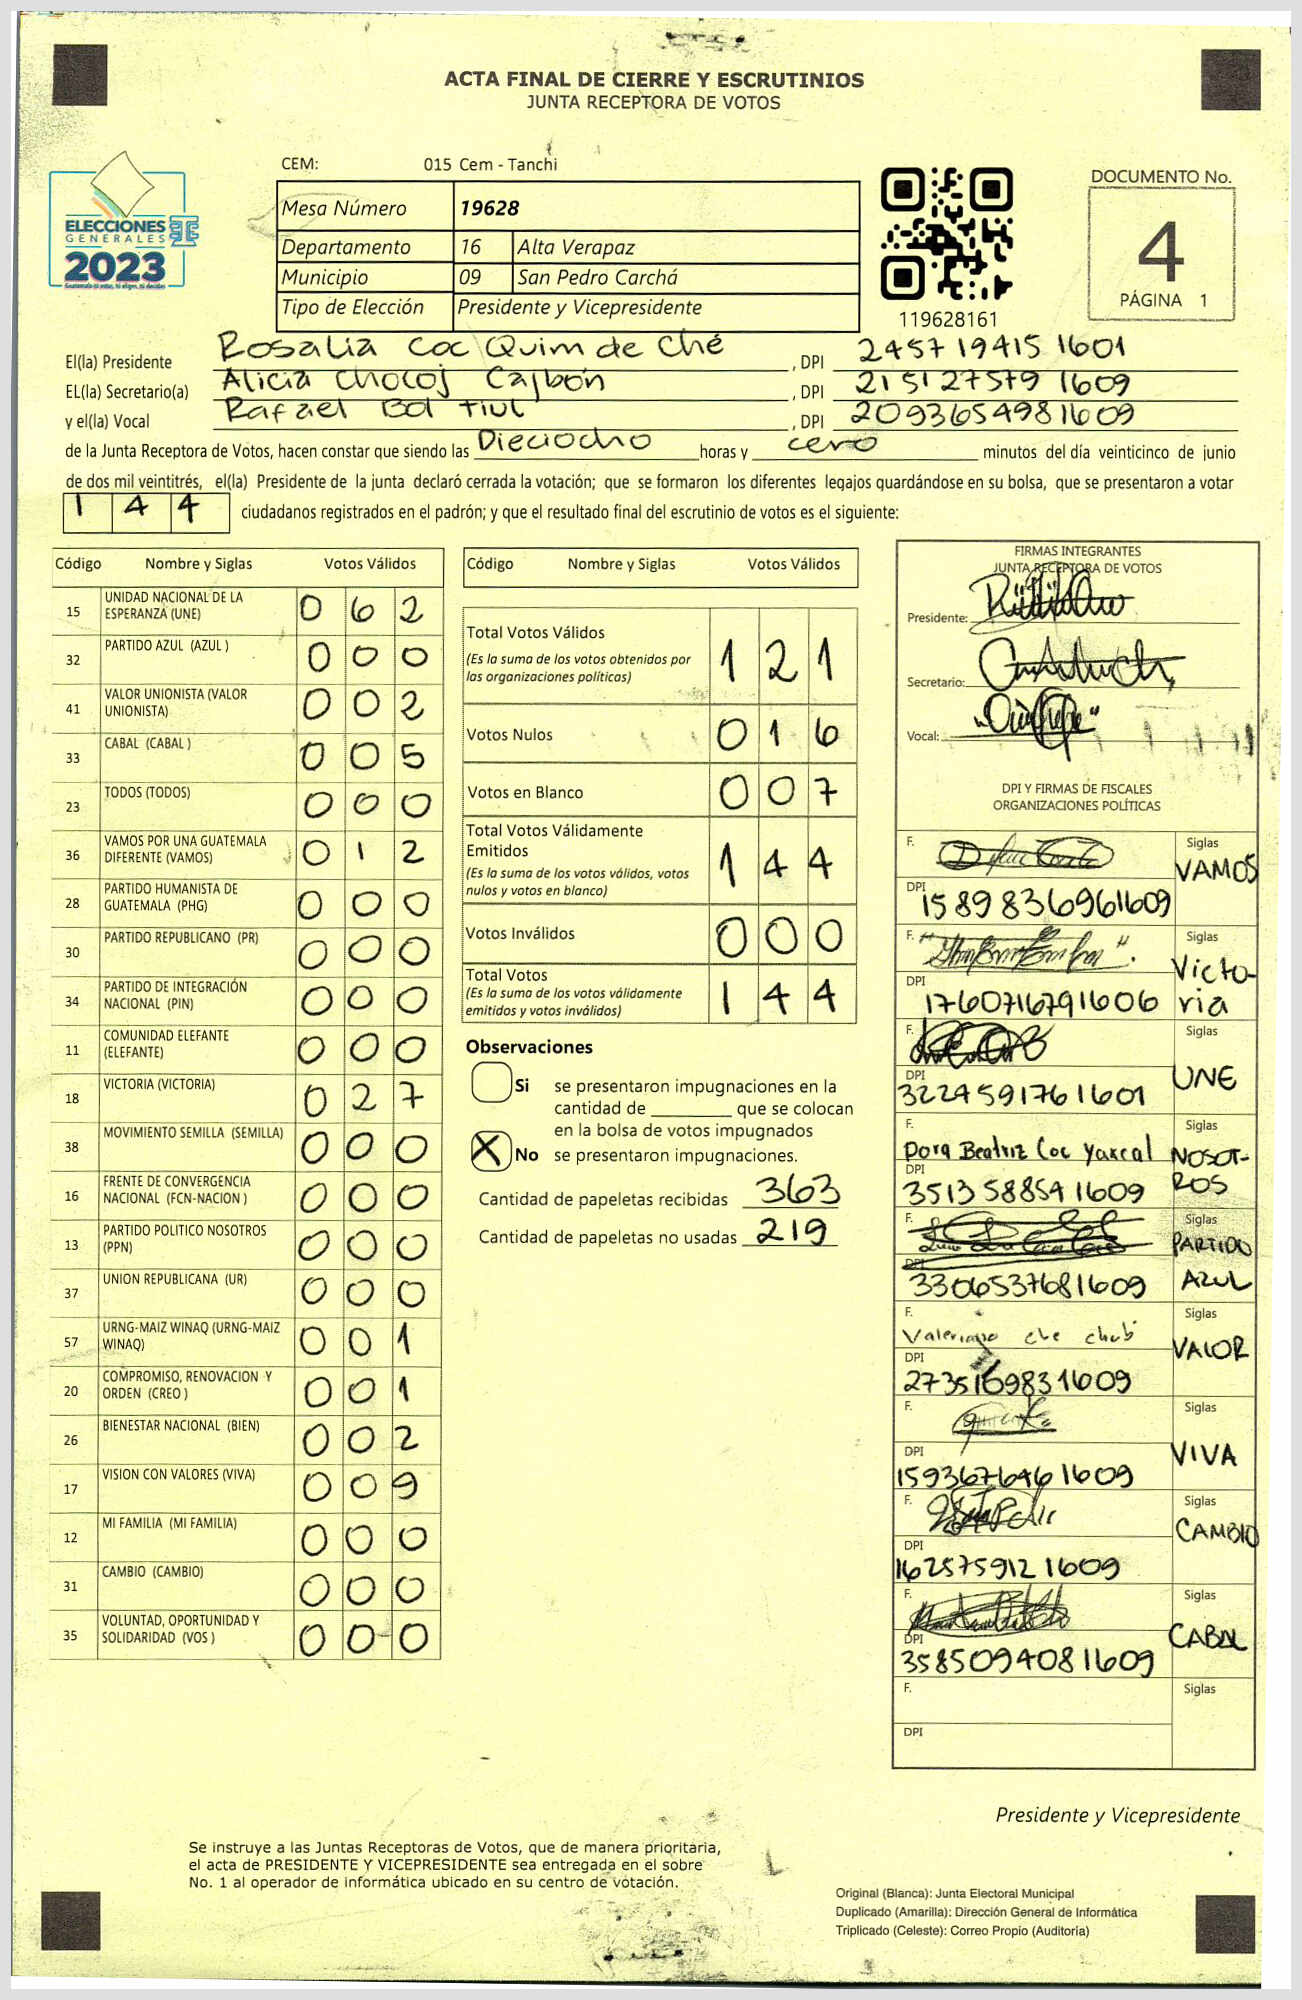 ACTA FINAL DE CIERRE Y ESCRUTINIOS
JUNTA RECEPTORA DE VOTOS
ELECCIONES
GENERALES
2023
CEM: 015 Cem - Tanchi
Mesa Número 19628
Departamento 16 Alta Verapaz
Municipio 09 San Pedro Carchá
Tipo de Elección Presidente y Vicepresidente
119628161
DOCUMENTO No.
4
PÁGINA 1
El(la) Presidente Rosalia Coc Quim de Ché , DPI 2457194151601
EL(la) Secretario(a) Alicia Choloj Cajbón , DPI 2151275791609
y el(la) Vocal Rafael Bol Tiul , DPI 2093654981609
de la Junta Receptora de Votos, hacen constar que siendo las Dieciocho horas y cero minutos del día veinticinco de junio
de dos mil veintitrés, el(la) Presidente de la junta declaró cerrada la votación; que se formaron los diferentes legajos guardándose en su bolsa, que se presentaron a votar
1 4 4 ciudadanos registrados en el padrón; y que el resultado final del escrutinio de votos es el siguiente:
Código Nombre y Siglas Votos Válidos
15 UNIDAD NACIONAL DE LA
ESPERANZA (UNE) 0 6 2
32 PARTIDO AZUL (AZUL ) 0 0 0
41 VALOR UNIONISTA (VALOR
UNIONISTA) 0 0 2
33 CABAL (CABAL ) 0 0 5
23 TODOS (TODOS) 0 0 0
36 VAMOS POR UNA GUATEMALA
DIFERENTE (VAMOS) 0 1 2
28 PARTIDO HUMANISTA DE
GUATEMALA (PHG) 0 0 0
30 PARTIDO REPUBLICANO (PR) 0 0 0
34 PARTIDO DE INTEGRACIÓN
NACIONAL (PIN) 0 0 0
11 COMUNIDAD ELEFANTE
(ELEFANTE) 0 0 0
18 VICTORIA (VICTORIA) 0 2 7
38 MOVIMIENTO SEMILLA (SEMILLA) 0 0 0
16 FRENTE DE CONVERGENCIA
NACIONAL (FCN-NACION ) 0 0 0
13 PARTIDO POLITICO NOSOTROS
(PPN) 0 0 0
37 UNION REPUBLICANA (UR) 0 0 0
57 URNG-MAIZ WINAQ (URNG-MAIZ
WINAQ) 0 0 1
20 COMPROMISO, RENOVACION Y
ORDEN (CREO ) 0 0 1
26 BIENESTAR NACIONAL (BIEN) 0 0 2
17 VISION CON VALORES (VIVA) 0 0 9
12 MI FAMILIA (MI FAMILIA) 0 0 0
31 CAMBIO (CAMBIO) 0 0 0
35 VOLUNTAD, OPORTUNIDAD Y
SOLIDARIDAD (VOS ) 0 0 0
Código Nombre y Siglas Votos Válidos
Total Votos Válidos 1 2 1
(Es la suma de los votos obtenidos por
las organizaciones políticas)
Votos Nulos 0 1 6
Votos en Blanco 0 0 7
Total Votos Válidamente
Emitidos 1 4 4
(Es la suma de los votos válidos, votos
nulos y votos en blanco)
Votos Inválidos 0 0 0
Total Votos 1 4 4
(Es la suma de los votos válidamente
emitidos y votos inválidos)
Observaciones
Si se presentaron impugnaciones en la
cantidad de ________ que se colocan
en la bolsa de votos impugnados
X No se presentaron impugnaciones.
Cantidad de papeletas recibidas 363
Cantidad de papeletas no usadas 219
FIRMAS INTEGRANTES
JUNTA RECEPTORA DE VOTOS
Presidente:
Secretario:
Vocal:
DPI Y FIRMAS DE FISCALES
ORGANIZACIONES POLÍTICAS
F. Siglas
VAMOS
DPI 1589836961609
F. Siglas
Victo-
ria
DPI 1760716791606
F. Siglas
UNE
DPI 3224591761601
F. Dora Beatriz Coc Yaxcal Siglas
NOSOT-
ROS
DPI 3513588541609
F. Siglas
PARTIDO
AZUL
DPI 3306537681609
F. Valeriano che chub Siglas
VALOR
DPI 2735169831609
F. Siglas
VIVA
DPI 1593676461609
F. Siglas
CAMBIO
DPI 1625759121609
F. Siglas
CABAL
DPI 3585094081609
F. Siglas
DPI
Presidente y Vicepresidente
Se instruye a las Juntas Receptoras de Votos, que de manera prioritaria,
el acta de PRESIDENTE Y VICEPRESIDENTE sea entregada en el sobre
No. 1 al operador de informática ubicado en su centro de votación.
Original (Blanca): Junta Electoral Municipal
Duplicado (Amarilla): Dirección General de Informática
Triplicado (Celeste): Correo Propio (Auditoría)